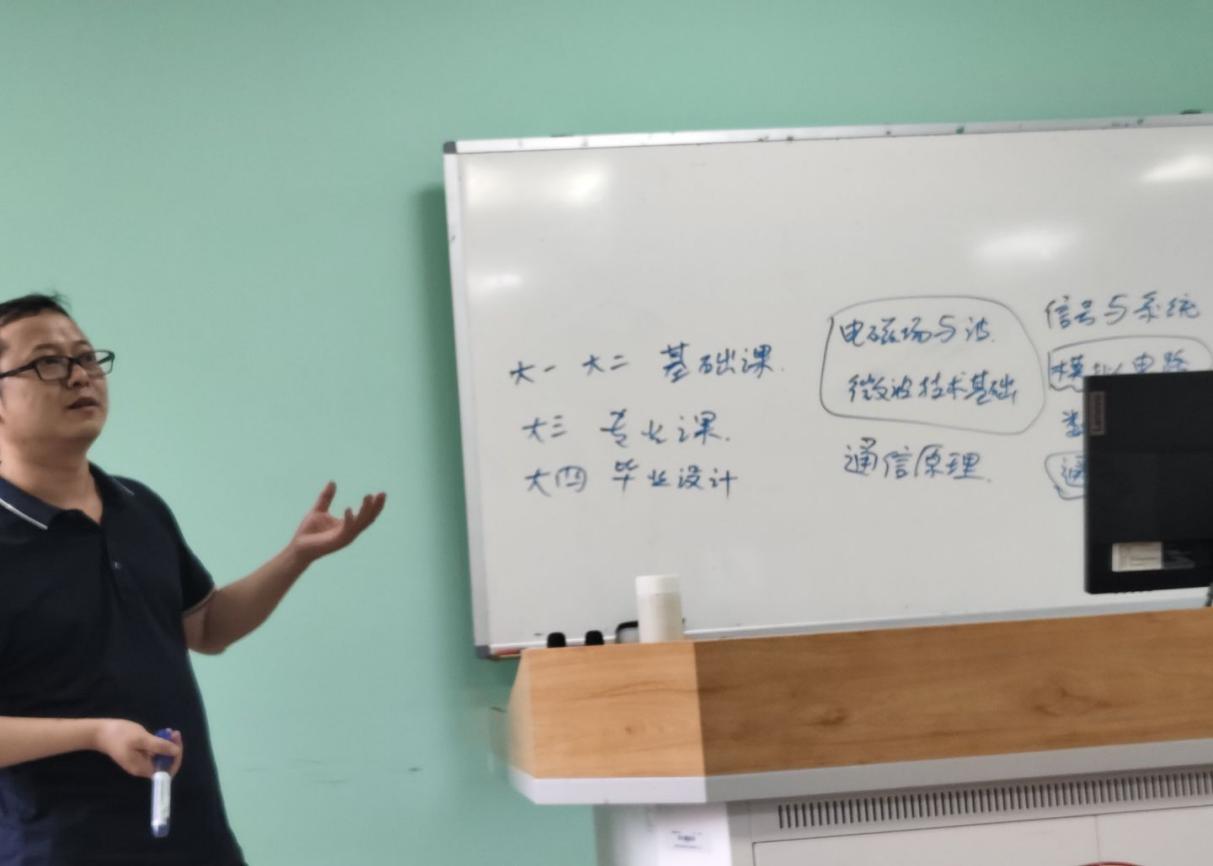 大一 大二 基础课.
大三 专业课.
大四 毕业设计
电磁场与波.
微波技术基础
通信原理.
信号与系统
模拟电路
通
Lenovo